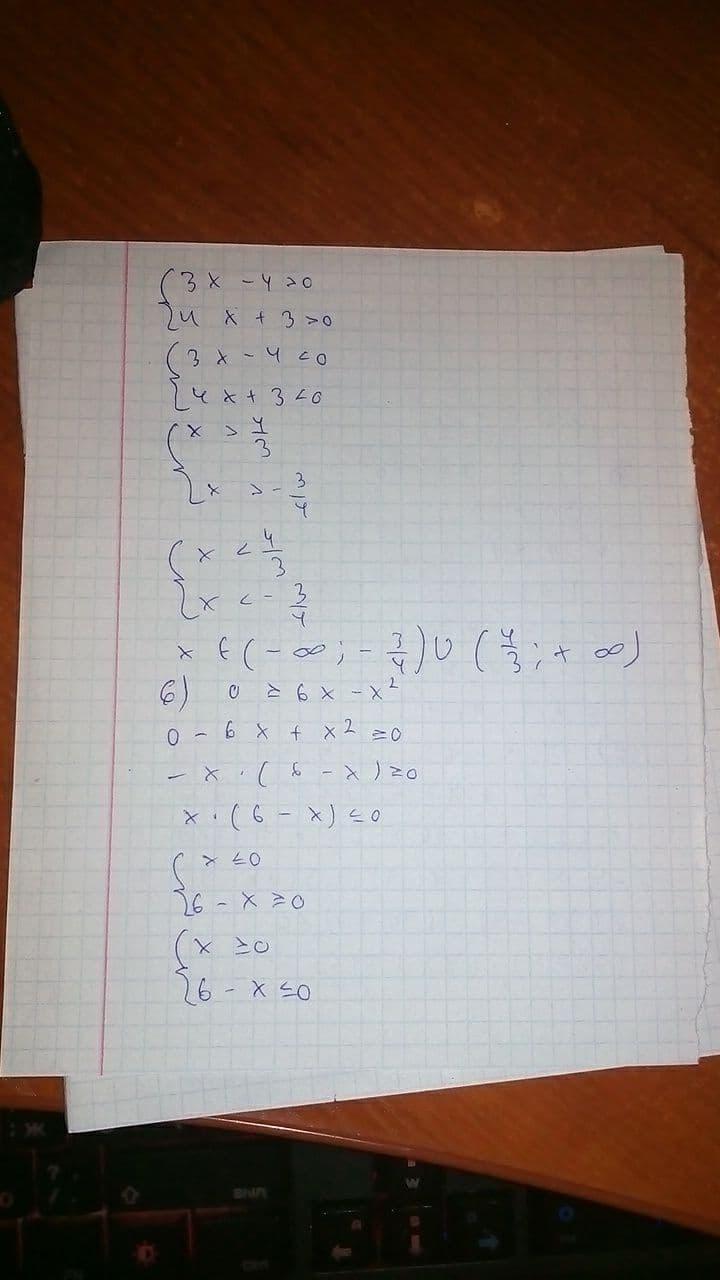 {3x - 4 > 0
{4x + 3 > 0
{3x - 4 < 0
{4x + 3 < 0
{x > 4/3
{x > - 3/4
{x < 4/3
{x < - 3/4
x ∈ (- ∞; - 3/4) ∪ (4/3; + ∞)
б) 0 ≥ 6x - x²
0 - 6x + x² ≥ 0
- x · (6 - x) ≥ 0
x · (6 - x) ≤ 0
{x ≤ 0
{6 - x ≥ 0
{x ≥ 0
{6 - x ≤ 0
Ж
?
Shift
W